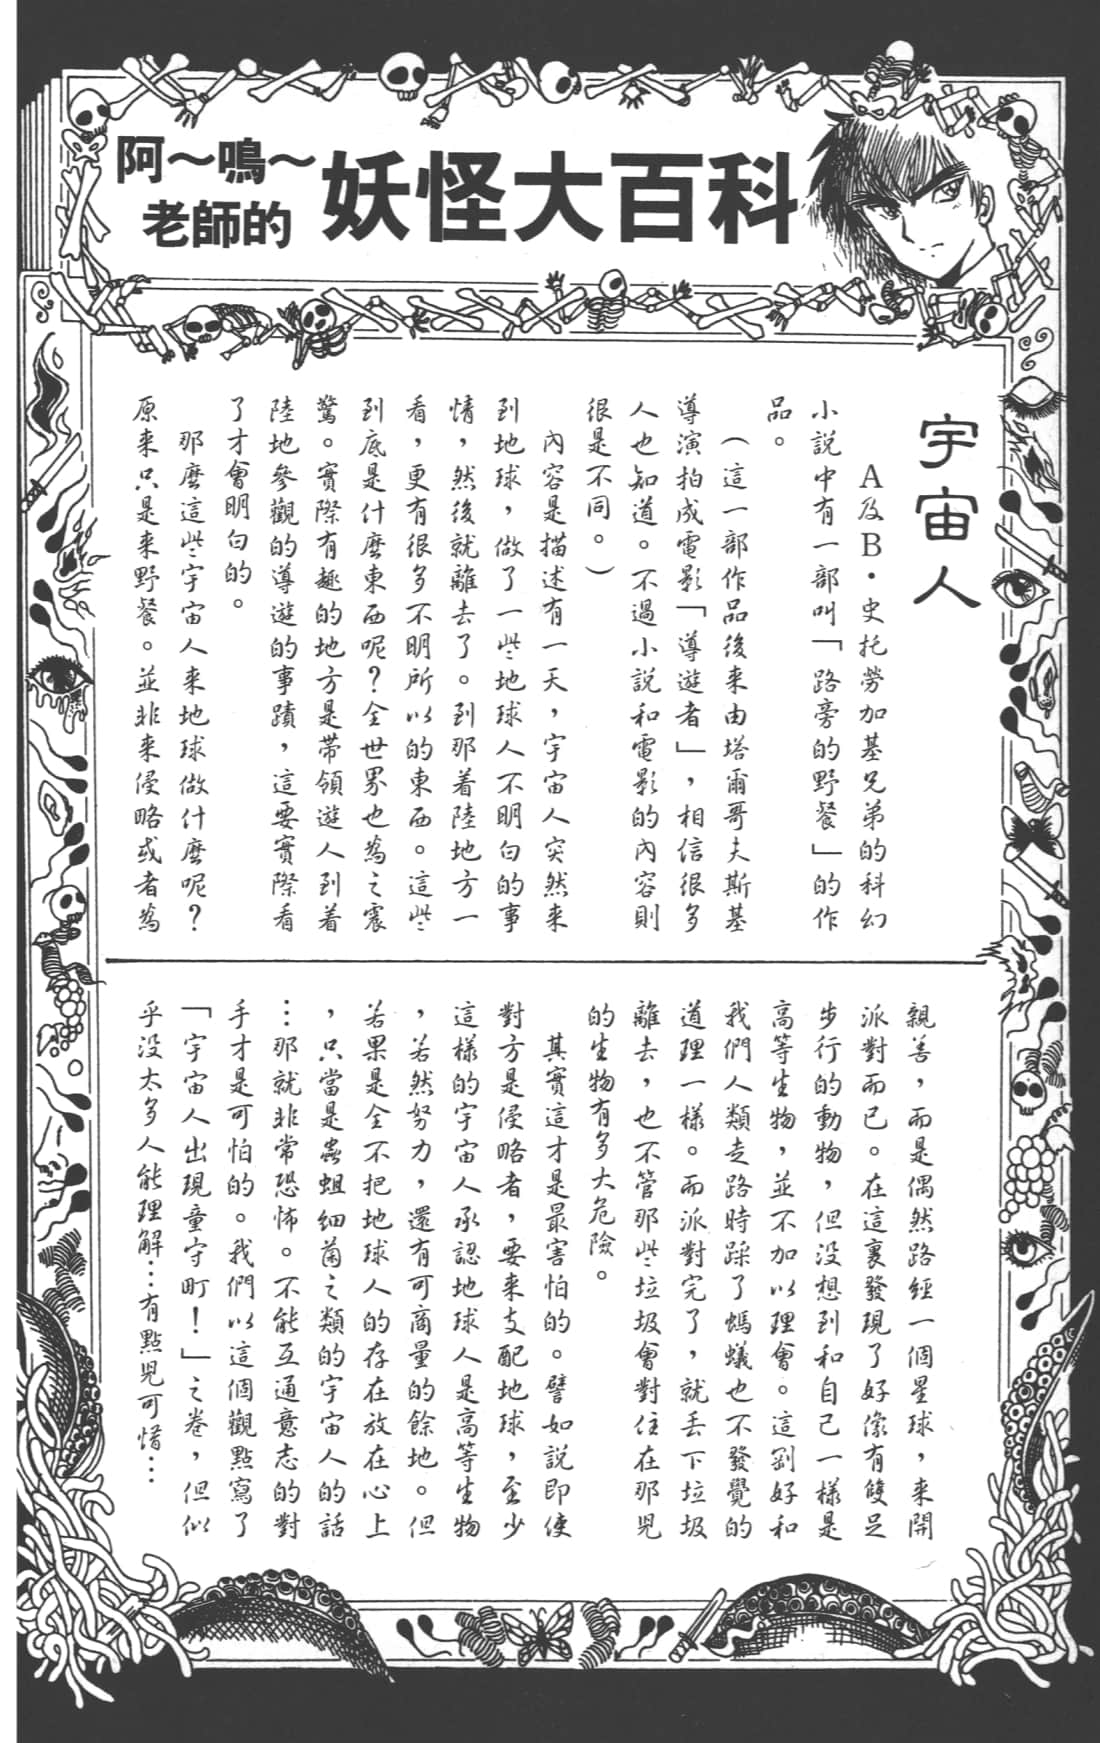 阿～鳴～
老師的
妖怪大百科
宇宙人
A及B·史托勞加基兄弟的科幻
小説中有一部叫「路旁的野餐」的作
品。
（這一部作品後来由塔爾哥夫斯基
導演拍成電影「導遊者」，相信很多
人也知道。不過小説和電影的內容則
很是不同。）
內容是描述有一天，宇宙人突然来
到地球，做了一些地球人不明白的事
情，然後就離去了。到那着陸地方一
看，更有很多不明所以的東西。這些
到底是什麼東西呢？全世界也為之震
驚。實際有趣的地方是帶領遊人到着
陸地參觀的導遊的事蹟，這要實際看
了才會明白的。
那麼這些宇宙人来地球做什麼呢？
原来只是来野餐。並非来侵略或者為
親善，而是偶然路經一個星球，来開
派對而已。在這裏發現了好像有雙足
步行的動物，但没想到和自己一樣是
高等生物，並不加以理會。這剛好和
我們人類走路時踩了螞蟻也不發覺的
道理一樣。而派對完了，就丢下垃圾
離去，也不管那些垃圾會對住在那兒
的生物有多大危險。
其實這才是最害怕的。譬如説即使
對方是侵略者，要来支配地球，至少
這樣的宇宙人承認地球人是高等生物
，若然努力，還有可商量的餘地。但
若果是全不把地球人的存在放在心上
，只當是蟲蛆細菌之類的宇宙人的話
…那就非常恐怖。不能互通意志的對
手才是可怕的。我們以這個觀點寫了
「宇宙人出現童守町！」之卷，但似
乎没太多人能理解…有點兒可惜…